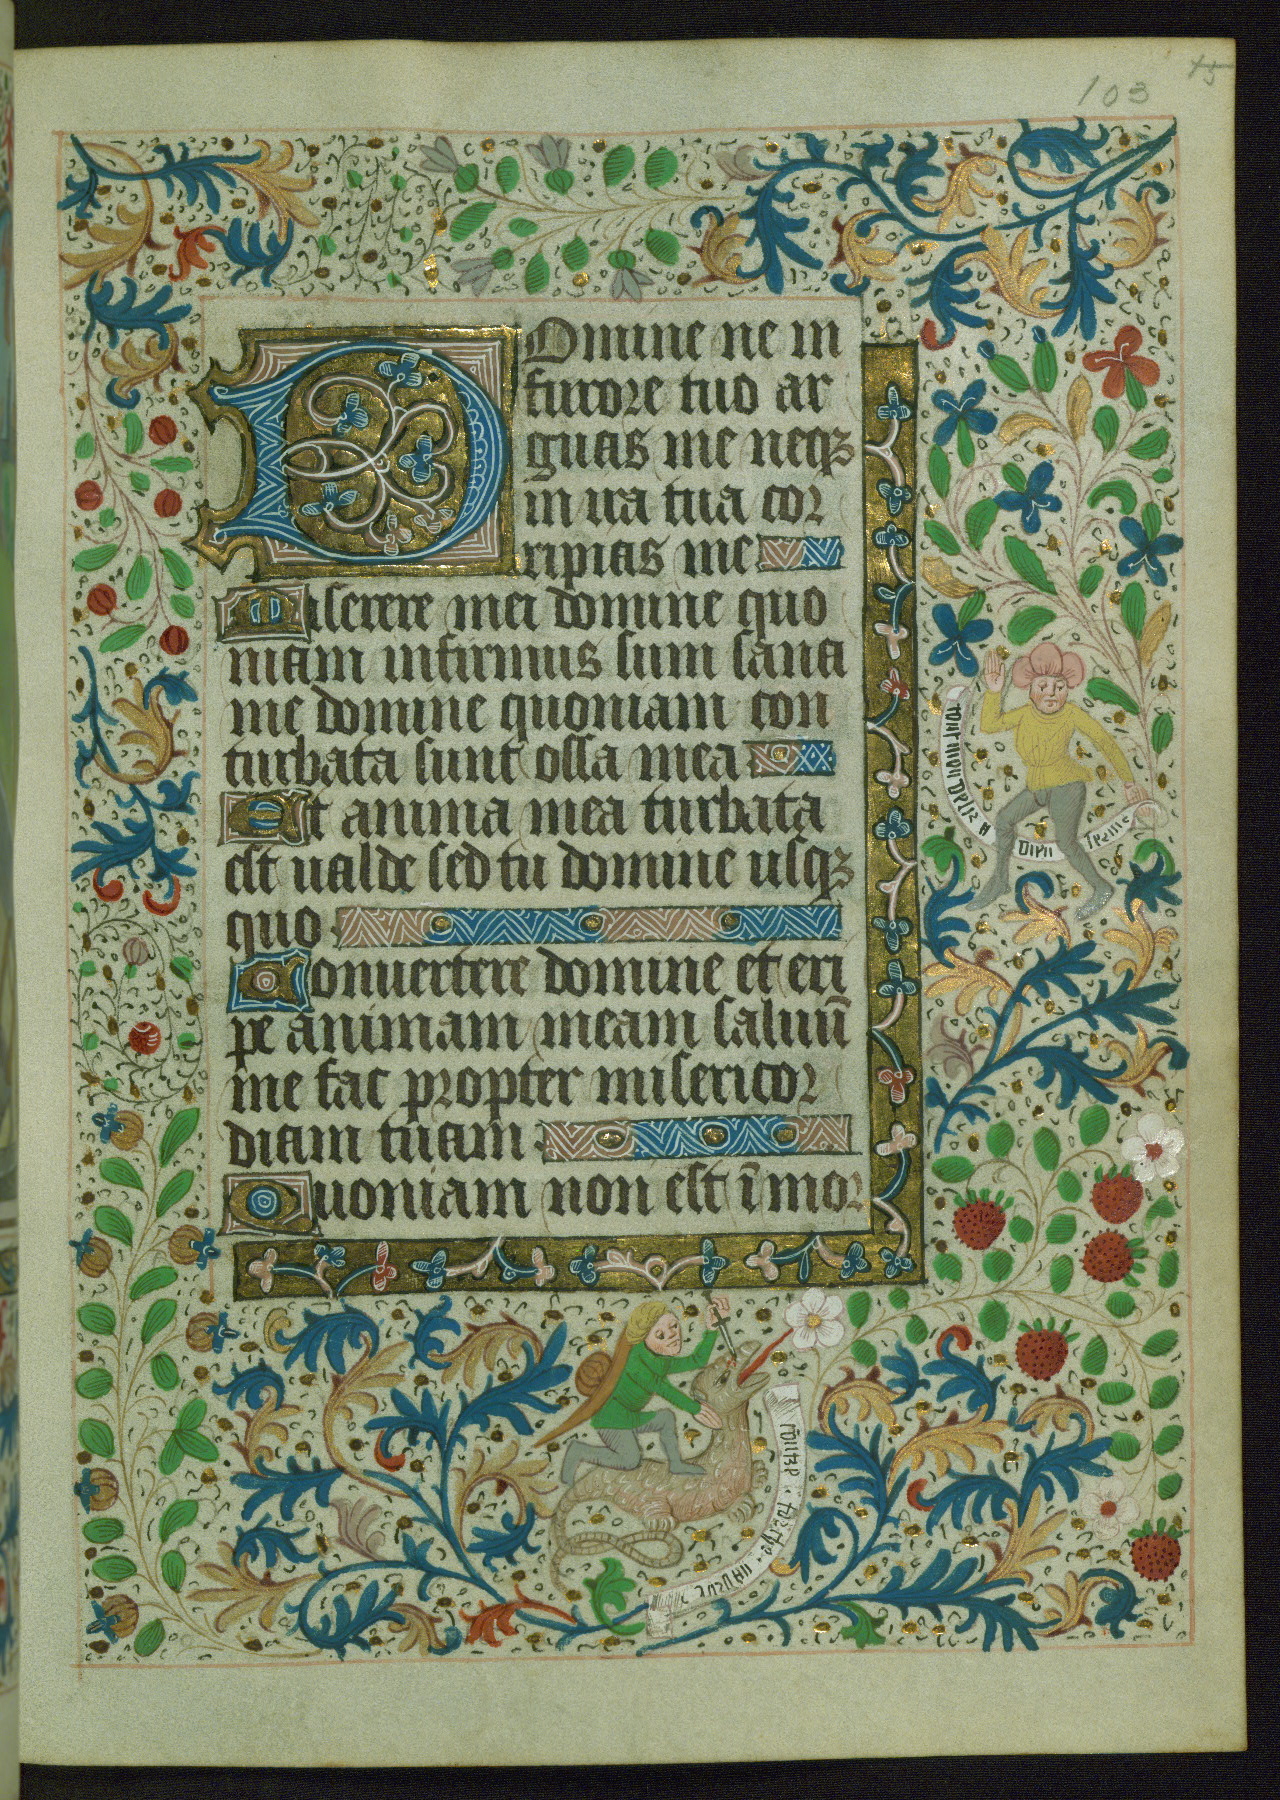 103
15
Domine ne in
furore tuo ar
guas me neqꝫ
in ira tua cor
ripias me
Miserere mei domine quo
niam infirmus sum sana
me domine quoniam con
turbata sunt ossa mea
Et anima mea turbata
est ualde sed tu domine usqꝫ
quo
Conuertere domine et eri
pe animam meam saluū
me fac propter misericor
diam tuam
Quoniam non est ī mor